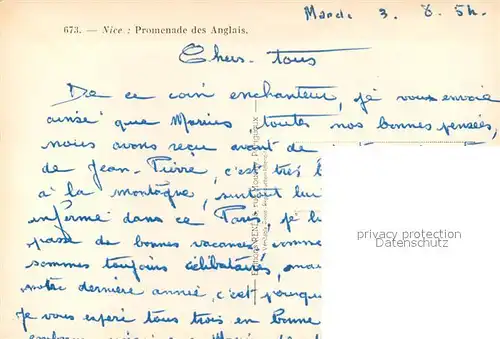 Mardi 3. 8. 54.
673. — Nice : Promenade des Anglais.
Chers tous
De ce coin enchanteur, je vous envoie
ainsi que Marius toutes nos bonnes pensées,
nous avons reçu avant de
de Jean-Pierre, c'est très
à la montagne, surtout lui
enfermé dans ce Paris, je
passe de bonnes vacances,
sommes toujours célibataires,
notre dernière année, c'est
je vous espère tous trois en bonne
privacy protection
Datenschutz